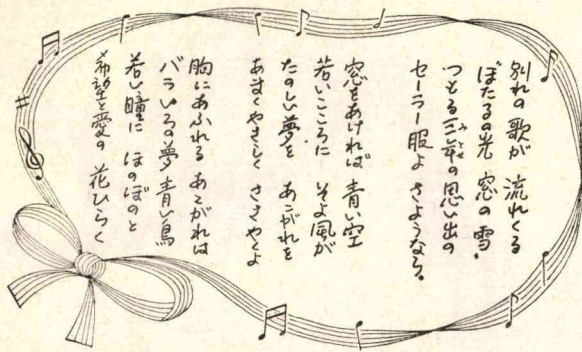 別れの歌が 流れくる
ほたるの光 窓の雪.
つもる三年の思い出の
セーラー服よ さようなら.
窓をあければ 青い空
若いこころに そよ風が
たのしい夢を あこがれを
あまくやさしく ささやくよ
胸にあふれる あこがれは
バラいろの夢 青い鳥
若い瞳に ほのぼのと
希望と愛の 花ひらく